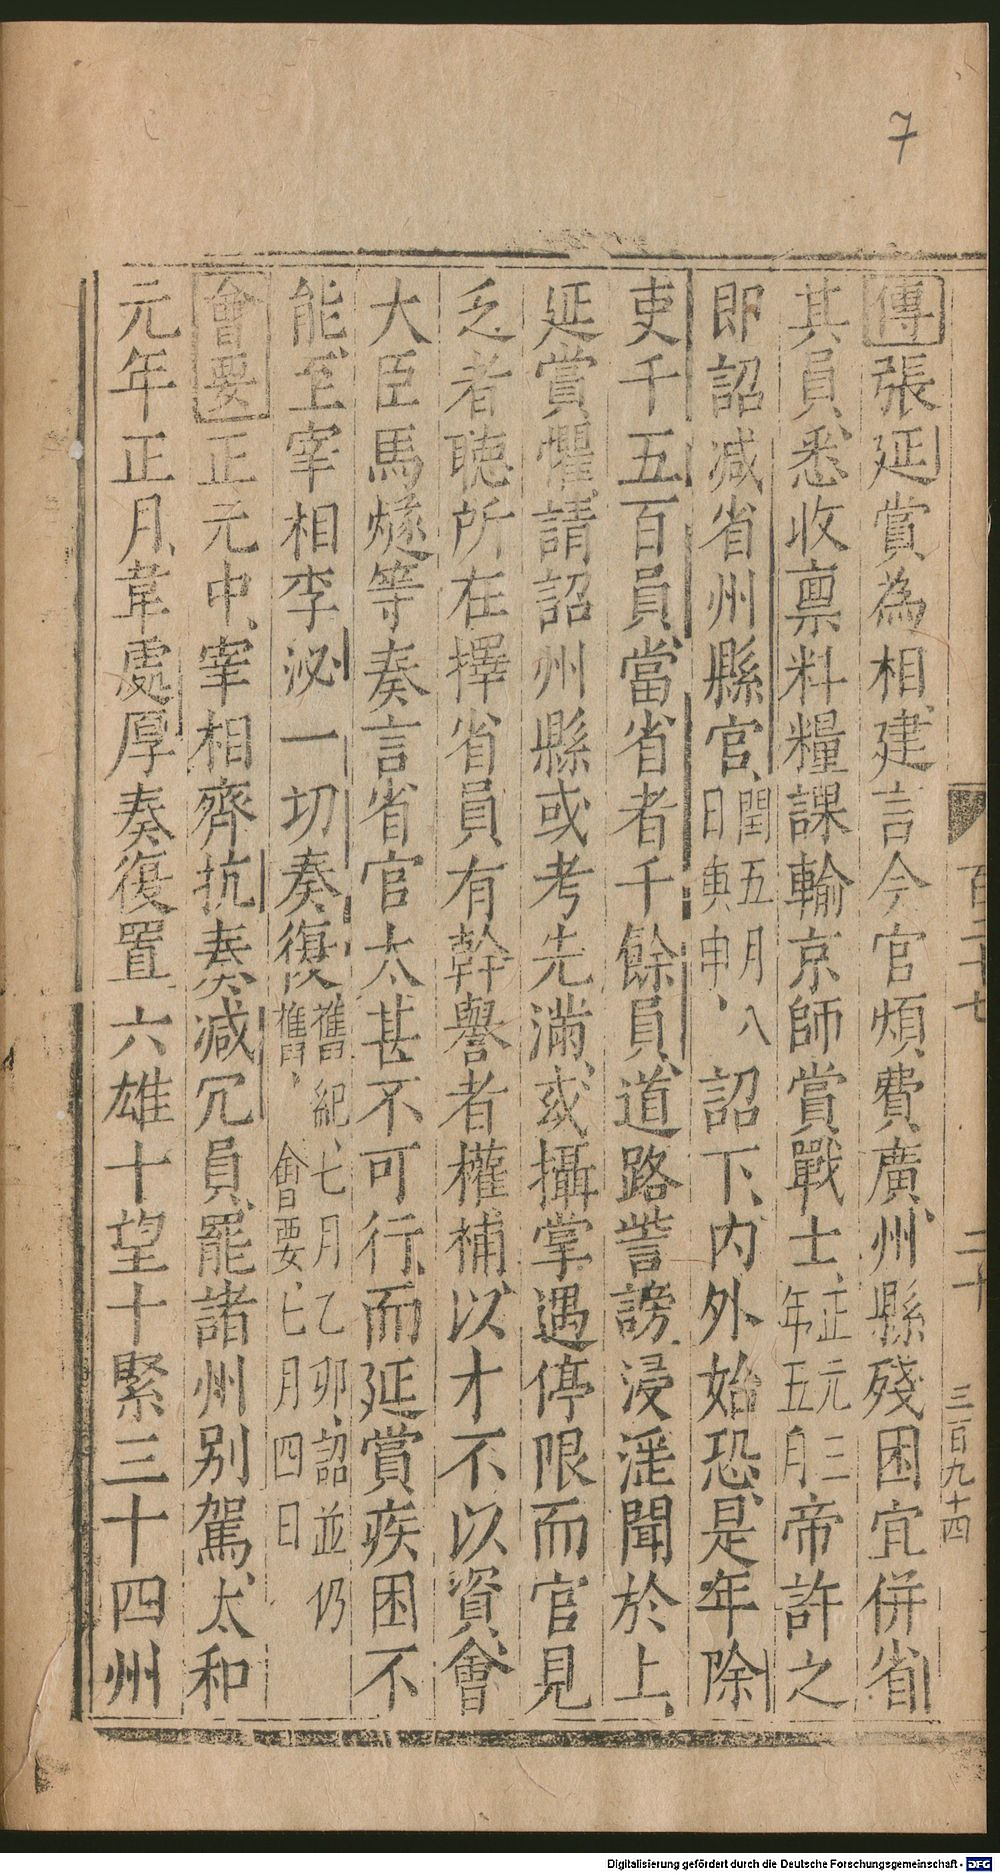 7
百三十七 二十 三百九十四
傳張延賞為相建言今官煩費廣州縣殘困宜併省
其員悉收禀料糧課輸京師賞戰士正元三年五月帝許之
即詔减省州縣官閏五月八日庚申詔下内外始恐是年除
吏千五百員當省者千餘員道路訾謗浸淫聞於上
延賞懼請詔州縣或考先滿或攝掌遇停限而官見
乏者聽所在擇省員有幹譽者權補以才不以資會
大臣馬燧等奏言省官太甚不可行而延賞疾困不
能宰相李泌一切奏復舊紀七月乙卯詔並仍舊會要七月四日
會要正元中宰相齊抗奏减冗員罷諸州别駕太和
元年正月韋處厚奏復置六雄十望十緊三十四州
Digitalisierung gefördert durch die Deutsche Forschungsgemeinschaft - DFG